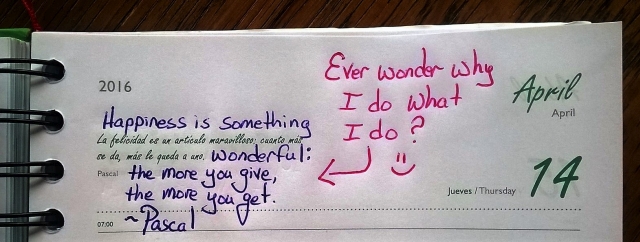 2016
Happiness is something
La felicidad es un artículo maravilloso: cuanto más
se da, más le queda a uno. wonderful:
Pascal the more you give,
the more you get.
~ Pascal
07:00
Ever wonder why
I do what
I do?
April
April
Jueves / Thursday 14